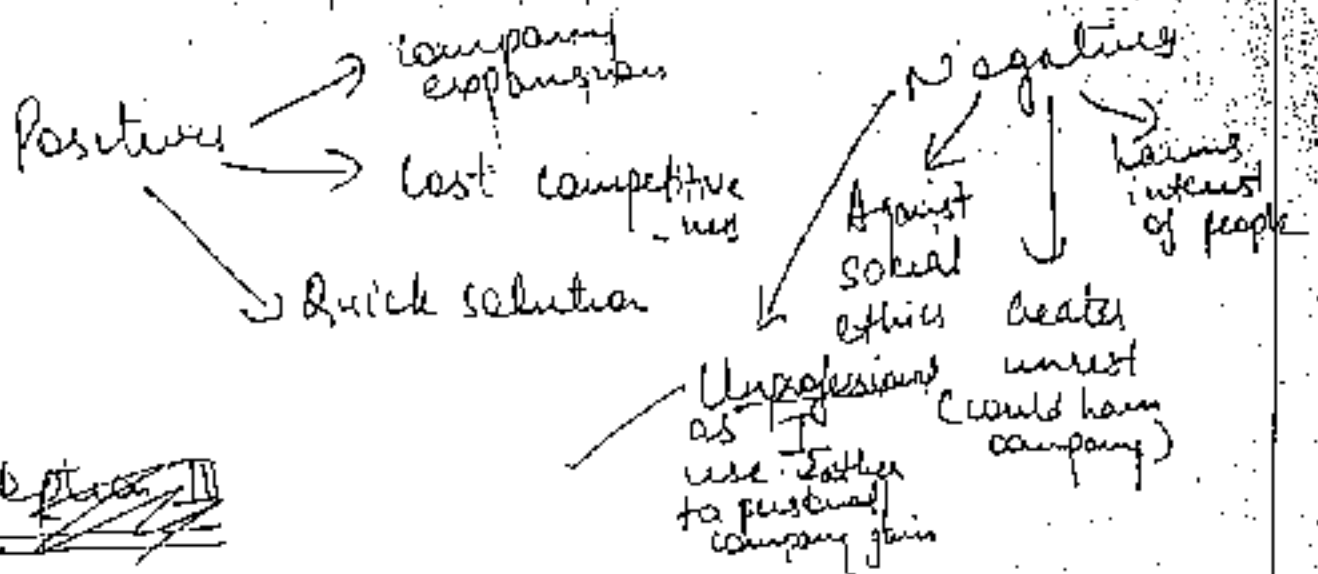 Positives
company
expansion
Cost competitive
-ness
Quick solution
Negatives
Against
social
ethics
Creates
unrest
(could harm
company)
harms
interest
of people
Unprofessional
as I
use father
to personal
company gain
Option